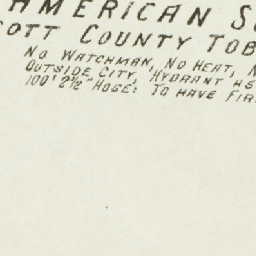 AMERICAN
COUNTY TOB
NO WATCHMAN, NO HEAT, N
OUTSIDE CITY, HYDRANT
100' 2½" HOSE: TO HAVE FIR